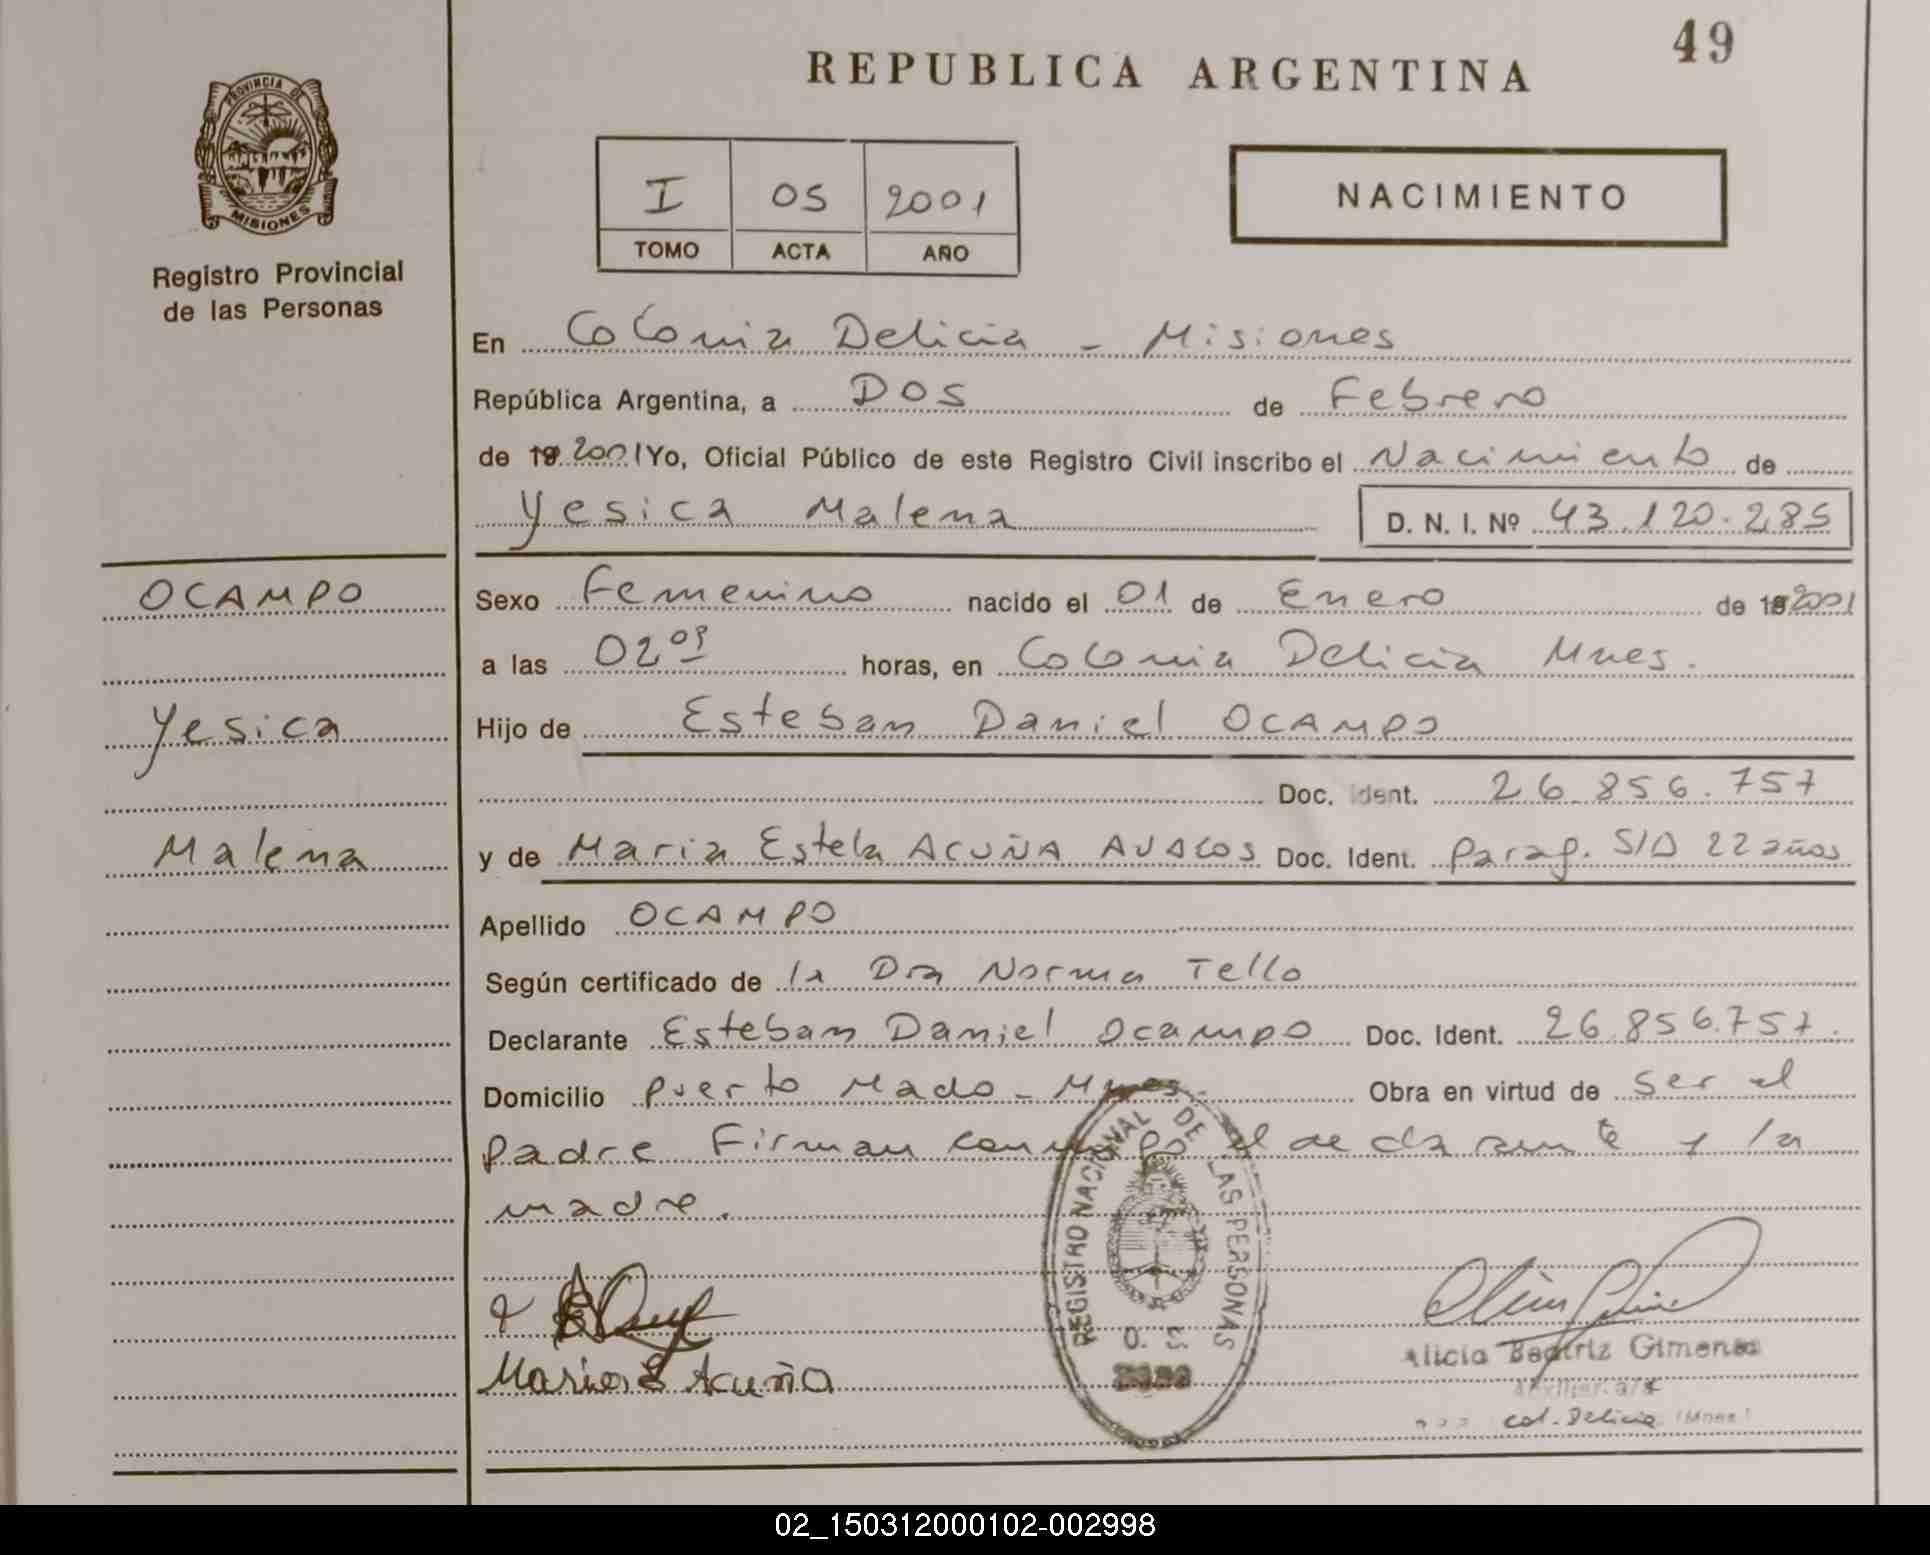 49
REPUBLICA ARGENTINA
PROVINCIA DE
MISIONES
Registro Provincial
de las Personas
I 05 2001
TOMO ACTA AÑO
NACIMIENTO
En Colonia Delicia - Misiones
República Argentina, a Dos de Febrero
de 19 2001 Yo, Oficial Público de este Registro Civil inscribo el Nacimiento de
Yesica Malena D. N. I. Nº 43.120.285
OCAMPO
Yesica
Malena
Sexo Femenino nacido el 01 de Enero de 19 2001
a las 02 horas, en Colonia Delicia Mnes.
Hijo de Esteban Daniel OCAMPO
Doc. Ident. 26.856.757
y de Maria Estela ACUÑA AVALOS Doc. Ident. Parag. S/D 22 años
Apellido OCAMPO
Según certificado de la Dra Norma Tello
Declarante Esteban Daniel Ocampo Doc. Ident. 26.856.757.
Domicilio Puerto Mado - Mnes. Obra en virtud de ser el
padre Firman el declarante y la
madre.
REGISTRO NACIONAL DE LAS PERSONAS
Maria E Acuña
Alicia Beatriz Gimenez
Col. Delicia (Mnes)
02_150312000102-002998